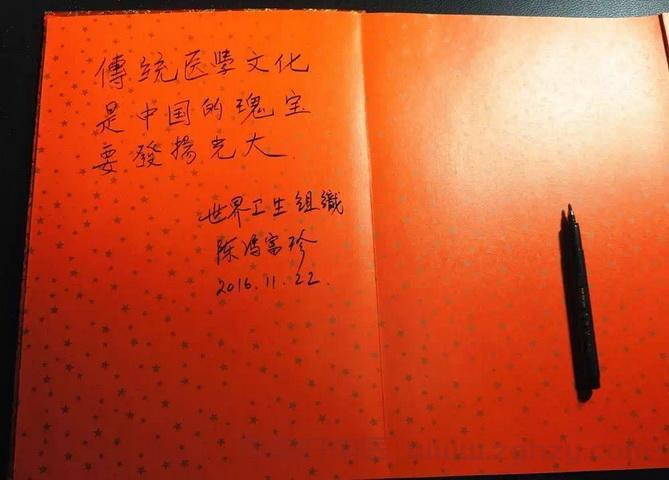 傳統医學文化
是中国的瑰宝
要發揚光大
世界卫生组織
陈冯富珍
2016.11.22.